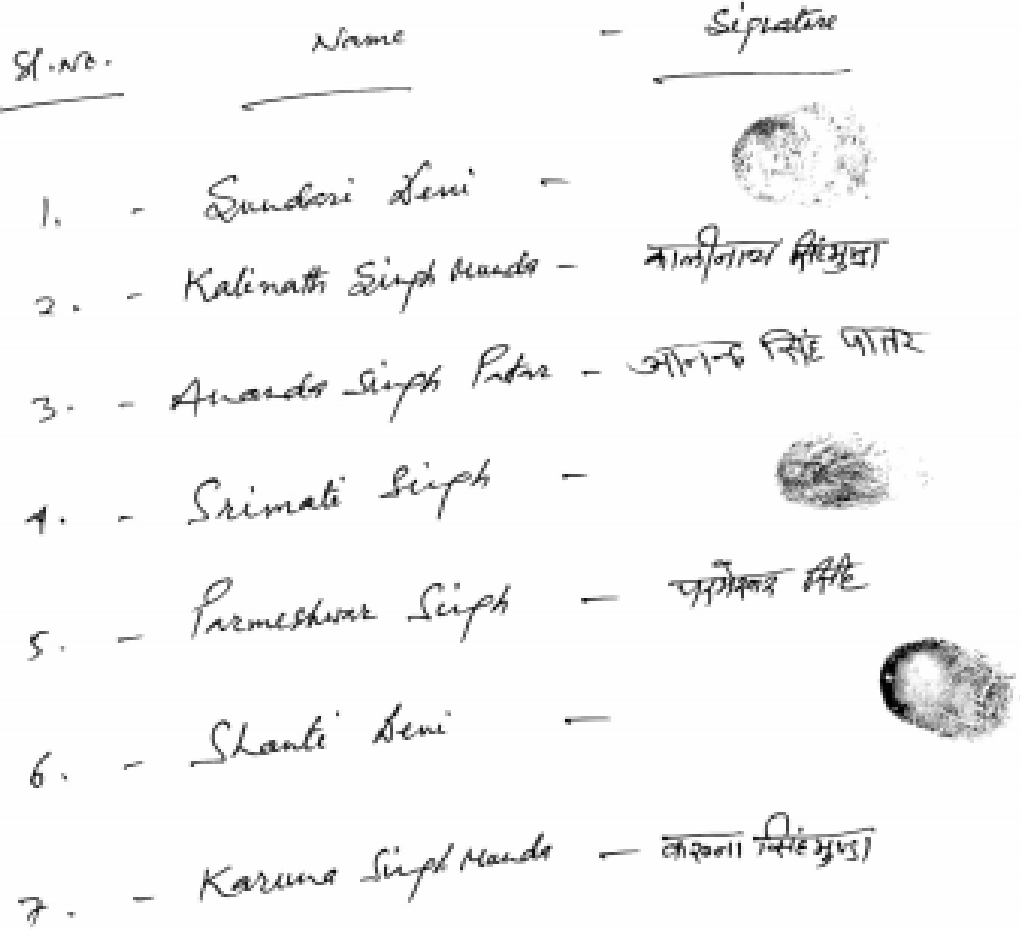 Sl.No. Name - Signature
1. - Sundari Devi -
2. - Kalinath Singh Munda - कालीनाथ सिंह मुण्डा
3. - Ananda Singh Patar - आनन्द सिंह पातर
4. - Srimati Singh -
5. - Parmeshwar Singh - परमेश्वर सिंह
6. - Shanti Devi -
7. - Karuna Singh Munda - करुना सिंह मुण्डा